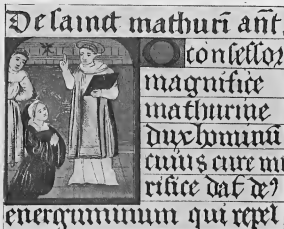 De sainct mathurī añt.
O confessor
magnifice
mathurine
dux hominū
cuius cure mi
rifice dat de⁹
energuminum qui repel